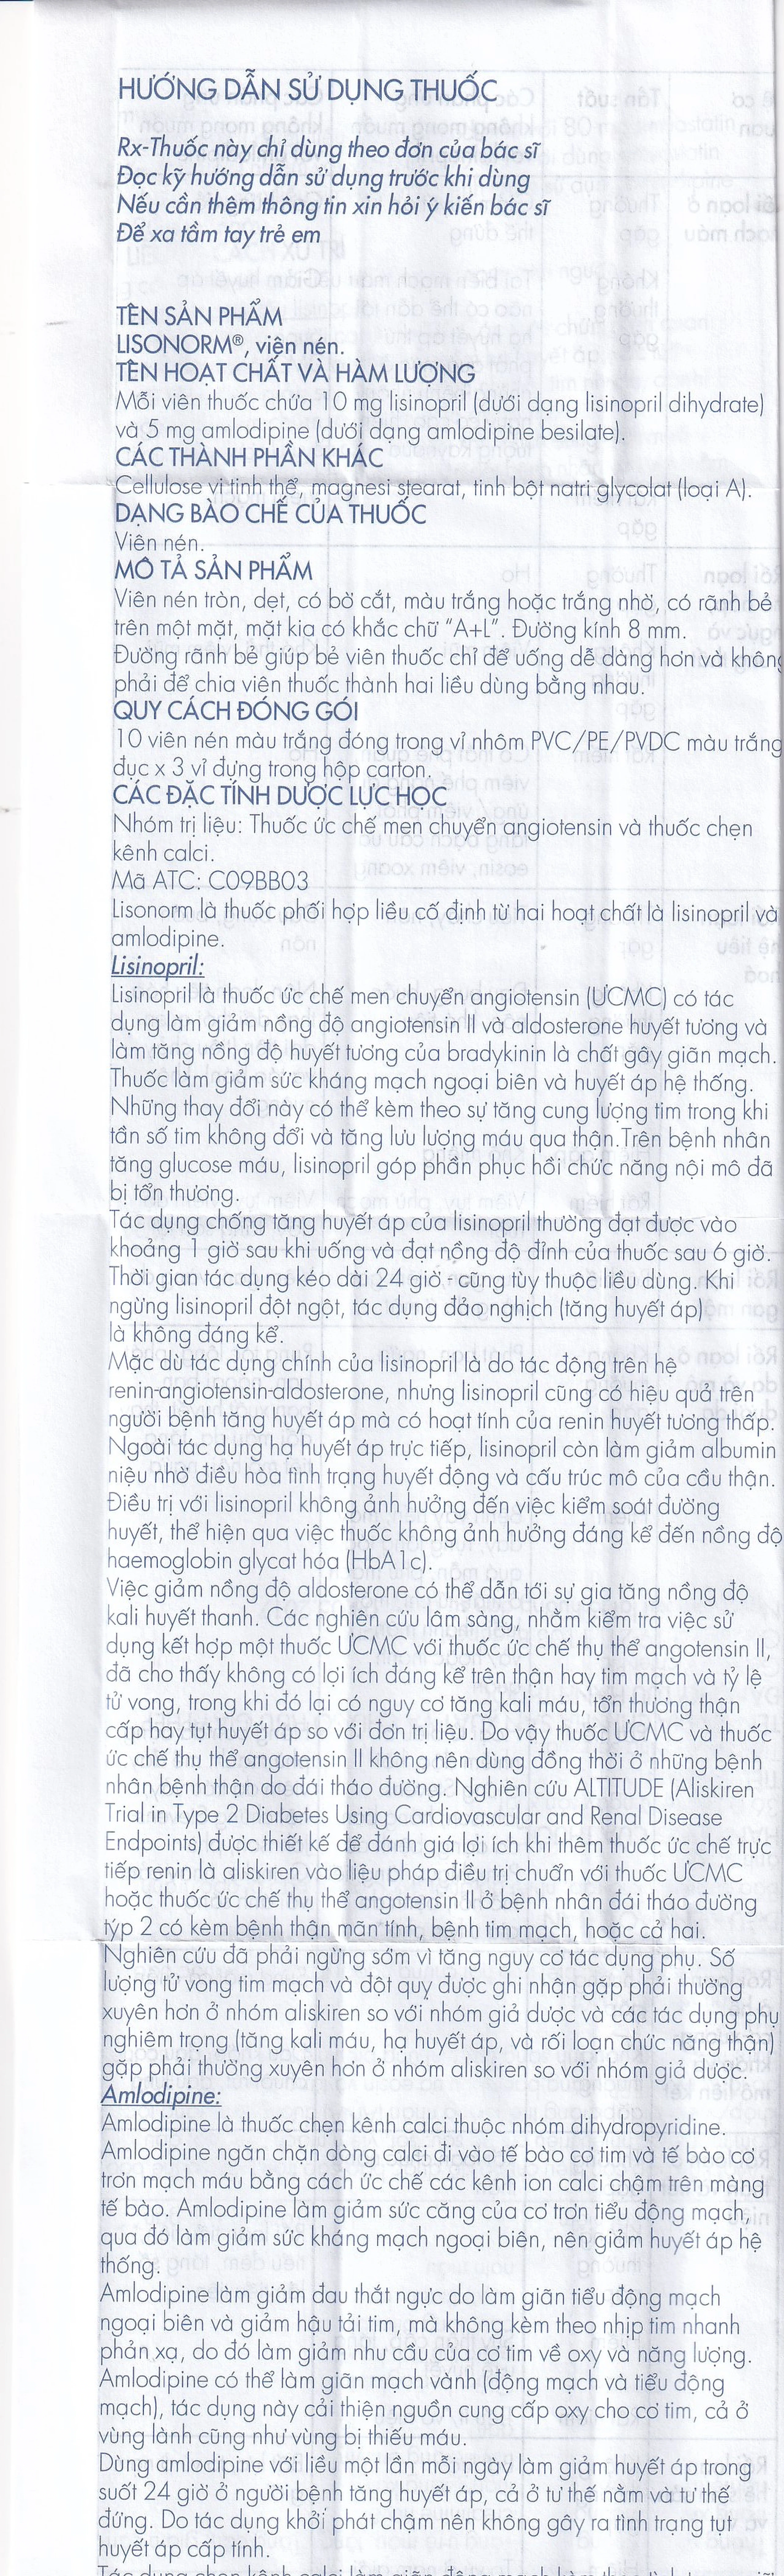 HƯỚNG DẪN SỬ DỤNG THUỐC
Rx-Thuốc này chỉ dùng theo đơn của bác sĩ
Đọc kỹ hướng dẫn sử dụng trước khi dùng
Nếu cần thêm thông tin xin hỏi ý kiến bác sĩ
Để xa tầm tay trẻ em
TÊN SẢN PHẨM
LISONORM®, viện nén.
TÊN HOẠT CHẤT VÀ HÀM LƯỢNG
Mỗi viên thuốc chứa 10 mg lisinopril (dưới dạng lisinopril dihydrate)
và 5 mg amlodipine (dưới dạng amlodipine besilate).
CÁC THÀNH PHẦN KHÁC
Cellulose vi tinh thể, magnesi stearat, tinh bột natri glycolat (loại A).
DẠNG BÀO CHẾ CỦA THUỐC
Viên nén.
MÔ TẢ SẢN PHẨM
Viên nén tròn, dẹt, có bờ cắt, màu trắng hoặc trắng nhờ, có rãnh bẻ
trên một mặt, mặt kia có khắc chữ "A+L". Đường kính 8 mm.
Đường rãnh bẻ giúp bẻ viên thuốc chỉ để uống dễ dàng hơn và không
phải để chia viên thuốc thành hai liều dùng bằng nhau.
QUY CÁCH ĐÓNG GÓI
10 viên nén màu trắng đóng trong vỉ nhôm PVC/PE/PVDC màu trắng
đục x 3 vỉ đựng trong hộp carton.
CÁC ĐẶC TÍNH DƯỢC LỰC HỌC
Nhóm trị liệu: Thuốc ức chế men chuyển angiotensin và thuốc chẹn
kênh calci.
Mã ATC: C09BB03
Lisonorm là thuốc phối hợp liều cố định từ hai hoạt chất là lisinopril và
amlodipine.
Lisinopril:
Lisinopril là thuốc ức chế men chuyển angiotensin (ƯCMC) có tác
dụng làm giảm nồng độ angiotensin II và aldosterone huyết tương và
làm tăng nồng độ huyết tương của bradykinin là chất gây giãn mạch.
Thuốc làm giảm sức kháng mạch ngoại biên và huyết áp hệ thống.
Những thay đổi này có thể kèm theo sự tăng cung lượng tim trong khi
tần số tim không đổi và tăng lưu lượng máu qua thận.Trên bệnh nhân
tăng glucose máu, lisinopril góp phần phục hồi chức năng nội mô đã
bị tổn thương.
Tác dụng chống tăng huyết áp của lisinopril thường đạt được vào
khoảng 1 giờ sau khi uống và đạt nồng độ đỉnh của thuốc sau 6 giờ.
Thời gian tác dụng kéo dài 24 giờ - cũng tùy thuộc liều dùng. Khi
ngừng lisinopril đột ngột, tác dụng đảo nghịch (tăng huyết áp)
là không đáng kể.
Mặc dù tác dụng chính của lisinopril là do tác động trên hệ
renin-angiotensin-aldosterone, nhưng lisinopril cũng có hiệu quả trên
người bệnh tăng huyết áp mà có hoạt tính của renin huyết tương thấp.
Ngoài tác dụng hạ huyết áp trực tiếp, lisinopril còn làm giảm albumin
niệu nhờ điều hòa tình trạng huyết động và cấu trúc mô của cầu thận.
Điều trị với lisinopril không ảnh hưởng đến việc kiểm soát đường
huyết, thể hiện qua việc thuốc không ảnh hưởng đáng kể đến nồng độ
haemoglobin glycat hóa (HbA1c).
Việc giảm nồng độ aldosterone có thể dẫn tới sự gia tăng nồng độ
kali huyết thanh. Các nghiên cứu lâm sàng, nhằm kiểm tra việc sử
dụng kết hợp một thuốc ƯCMC với thuốc ức chế thụ thể angotensin II,
đã cho thấy không có lợi ích đáng kể trên thận hay tim mạch và tỷ lệ
tử vong, trong khi đó lại có nguy cơ tăng kali máu, tổn thương thận
cấp hay tụt huyết áp so với đơn trị liệu. Do vậy thuốc ƯCMC và thuốc
ức chế thụ thể angotensin II không nên dùng đồng thời ở những bệnh
nhân bệnh thận do đái tháo đường. Nghiên cứu ALTITUDE (Aliskiren
Trial in Type 2 Diabetes Using Cardiovascular and Renal Disease
Endpoints) được thiết kế để đánh giá lợi ích khi thêm thuốc ức chế trực
tiếp renin là aliskiren vào liệu pháp điều trị chuẩn với thuốc ƯCMC
hoặc thuốc ức chế thụ thể angotensin II ở bệnh nhân đái tháo đường
týp 2 có kèm bệnh thận mãn tính, bệnh tim mạch, hoặc cả hai.
Nghiên cứu đã phải ngừng sớm vì tăng nguy cơ tác dụng phụ. Số
lượng tử vong tim mạch và đột quỵ được ghi nhận gặp phải thường
xuyên hơn ở nhóm aliskiren so với nhóm giả dược và các tác dụng phụ
nghiêm trọng (tăng kali máu, hạ huyết áp, và rối loạn chức năng thận)
gặp phải thường xuyên hơn ở nhóm aliskiren so với nhóm giả dược.
Amlodipine:
Amlodipine là thuốc chẹn kênh calci thuộc nhóm dihydropyridine.
Amlodipine ngăn chặn dòng calci đi vào tế bào cơ tim và tế bào cơ
trơn mạch máu bằng cách ức chế các kênh ion calci chậm trên màng
tế bào. Amlodipine làm giảm sức căng của cơ trơn tiểu động mạch,
qua đó làm giảm sức kháng mạch ngoại biên, nên giảm huyết áp hệ
thống.
Amlodipine làm giảm đau thắt ngực do làm giãn tiểu động mạch
ngoại biên và giảm hậu tải tim, mà không kèm theo nhịp tim nhanh
phản xạ, do đó làm giảm nhu cầu của cơ tim về oxy và năng lượng.
Amlodipine có thể làm giãn mạch vành (động mạch và tiểu động
mạch), tác dụng này cải thiện nguồn cung cấp oxy cho cơ tim, cả ở
vùng lành cũng như vùng bị thiếu máu.
Dùng amlodipine với liều một lần mỗi ngày làm giảm huyết áp trong
suốt 24 giờ ở người bệnh tăng huyết áp, cả ở tư thế nằm và tư thế
đứng. Do tác dụng khởi phát chậm nên không gây ra tình trạng tụt
huyết áp cấp tính.